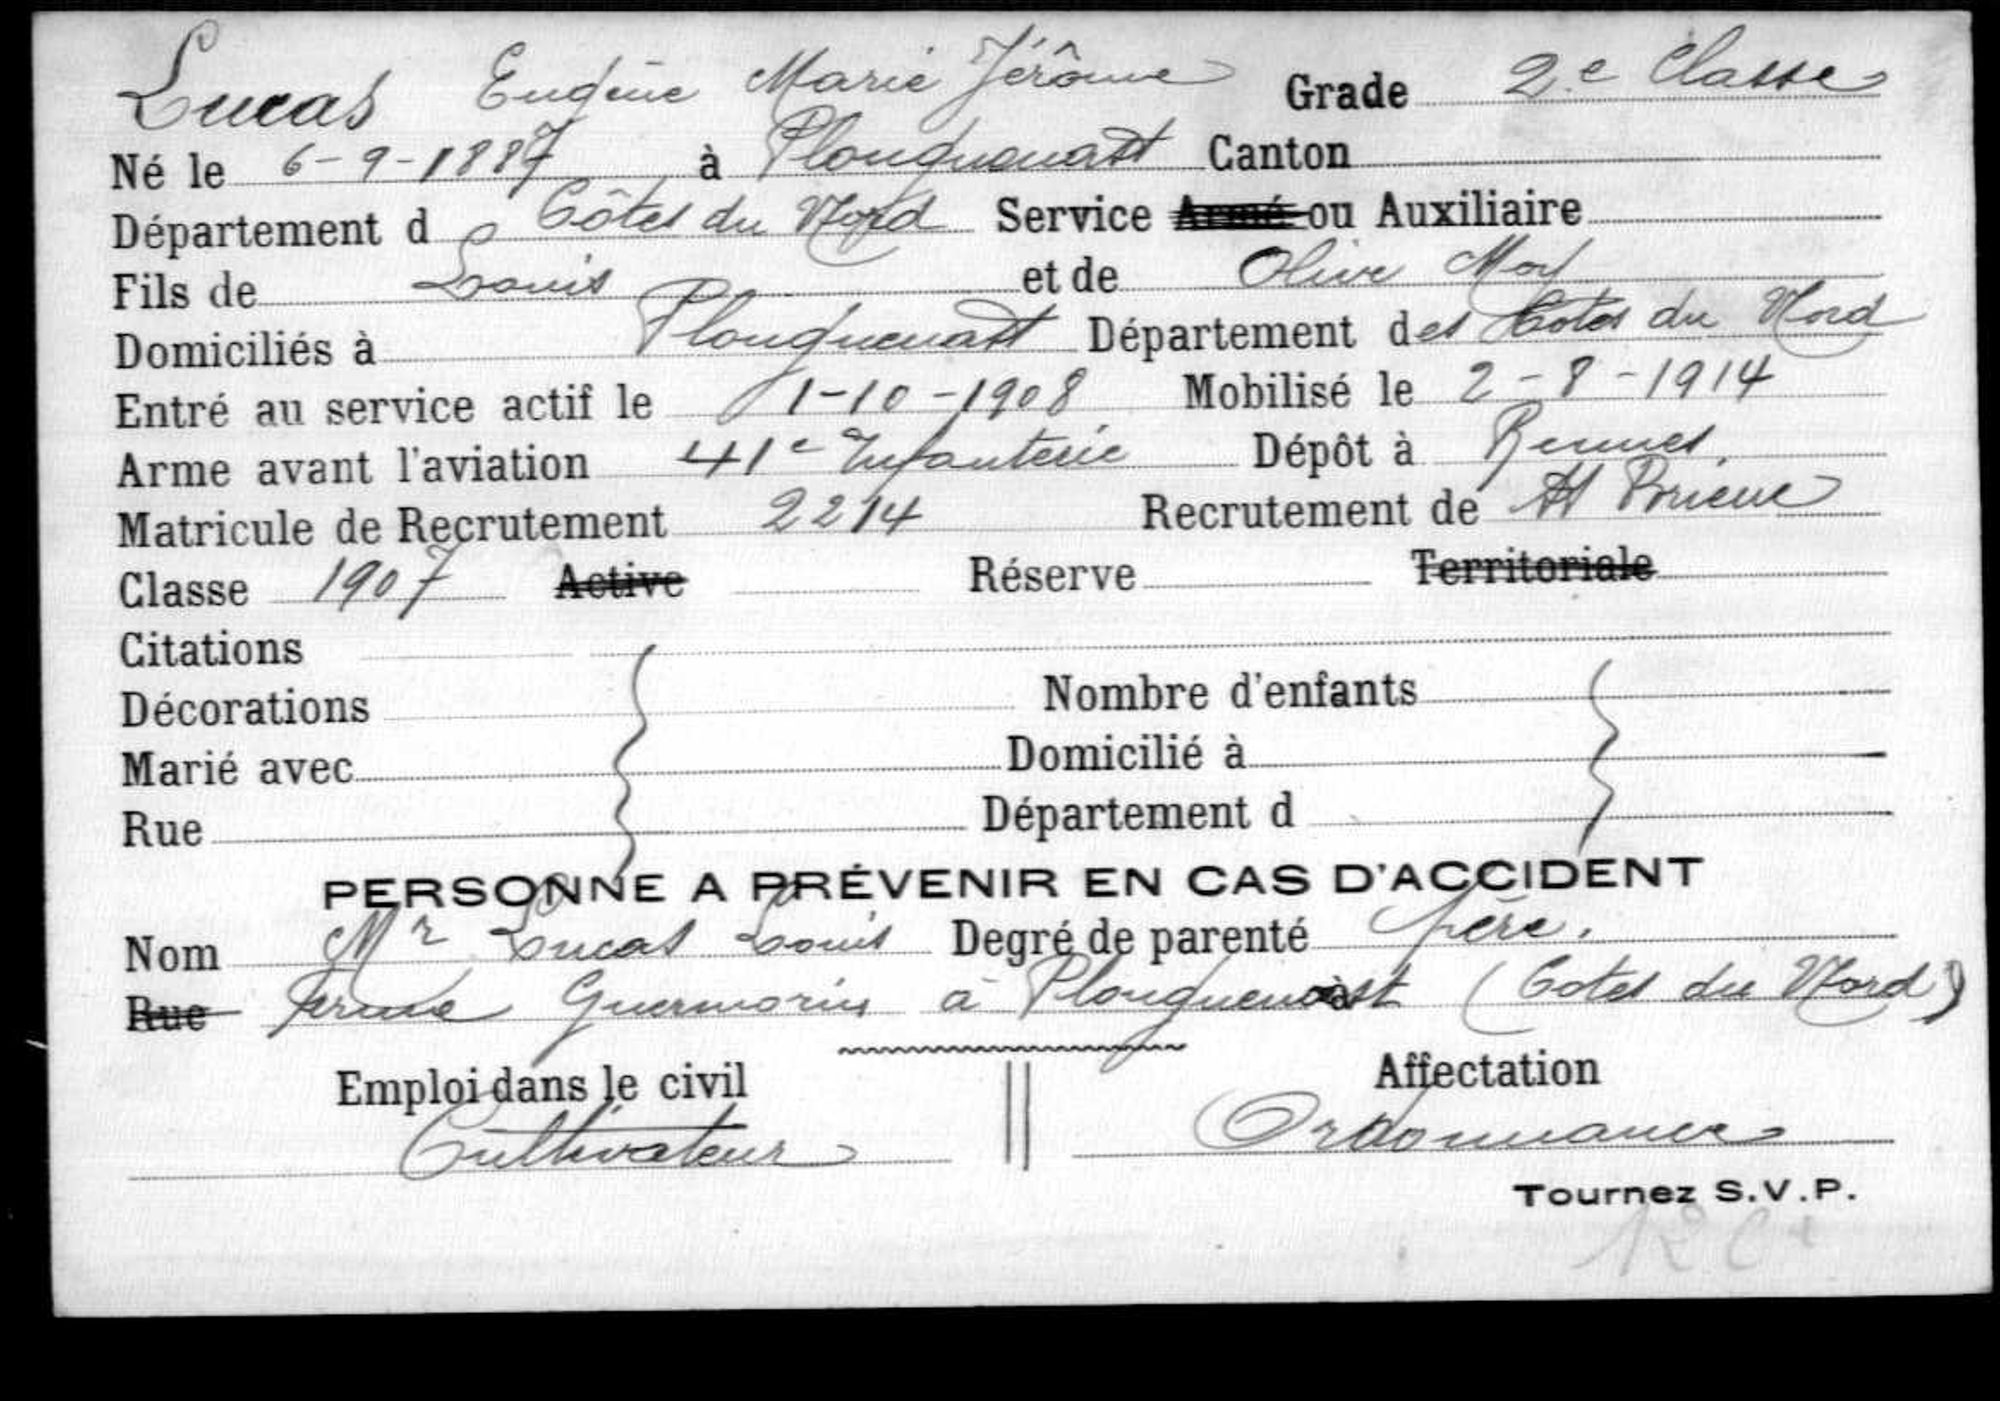 Lucas Eugène Marie Jérôme Grade 2e Classe
Né le 6-9-1887 à Plouguenast Canton
Département d Côtes du Nord Service Armé ou Auxiliaire
Fils de Louis et de Olive Moy
Domiciliés à Plouguenast Département des Cotes du Nord
Entré au service actif le 1-10-1908 Mobilisé le 2-8-1914
Arme avant l'aviation 41e Infanterie Dépôt à Rennes.
Matricule de Recrutement 2214 Recrutement de St Brieuc
Classe 1907 Active Réserve Territoriale
Citations
Décorations Nombre d'enfants
Marié avec Domicilié à
Rue Département d
PERSONNE A PRÉVENIR EN CAS D'ACCIDENT
Nom Mr Lucas Louis Degré de parenté père.
Rue ferme Guermorin à Plouguenast (Cotes du Nord)
Emploi dans le civil Affectation
Cultivateur Ordonnance
Tournez S.V.P.